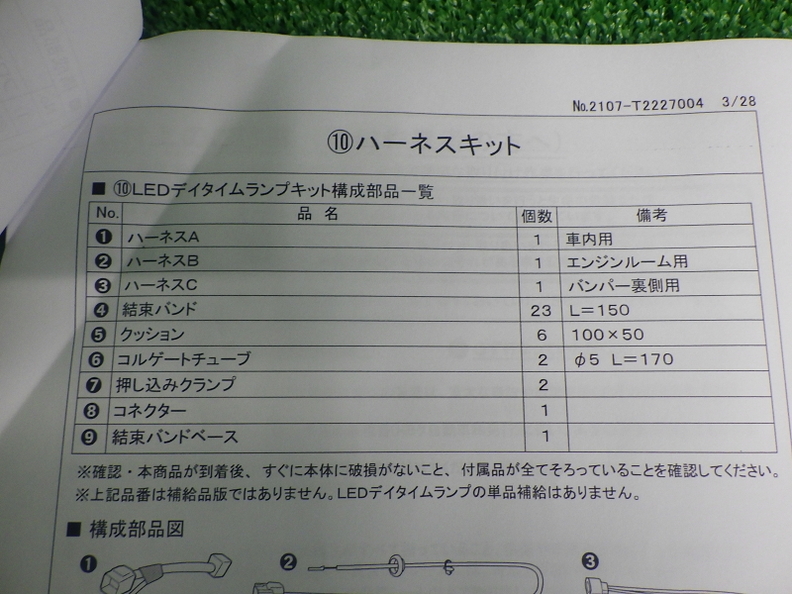 No.2107-T2227004 3/28
⑩ハーネスキット
■ ⑩LEDデイタイムランプキット構成部品一覧
No. 品 名 個数 備考
❶ ハーネスA 1 車内用
❷ ハーネスB 1 エンジンルーム用
❸ ハーネスC 1 バンパー裏側用
❹ 結束バンド 23 L=150
❺ クッション 6 100×50
❻ コルゲートチューブ 2 φ5 L=170
❼ 押し込みクランプ 2
❽ コネクター 1
❾ 結束バンドベース 1
※確認・本商品が到着後、すぐに本体に破損がないこと、付属品が全てそろっていることを確認してください。
※上記品番は補給品版ではありません。LEDデイタイムランプの単品補給はありません。
■ 構成部品図
❶ ❷ ❸